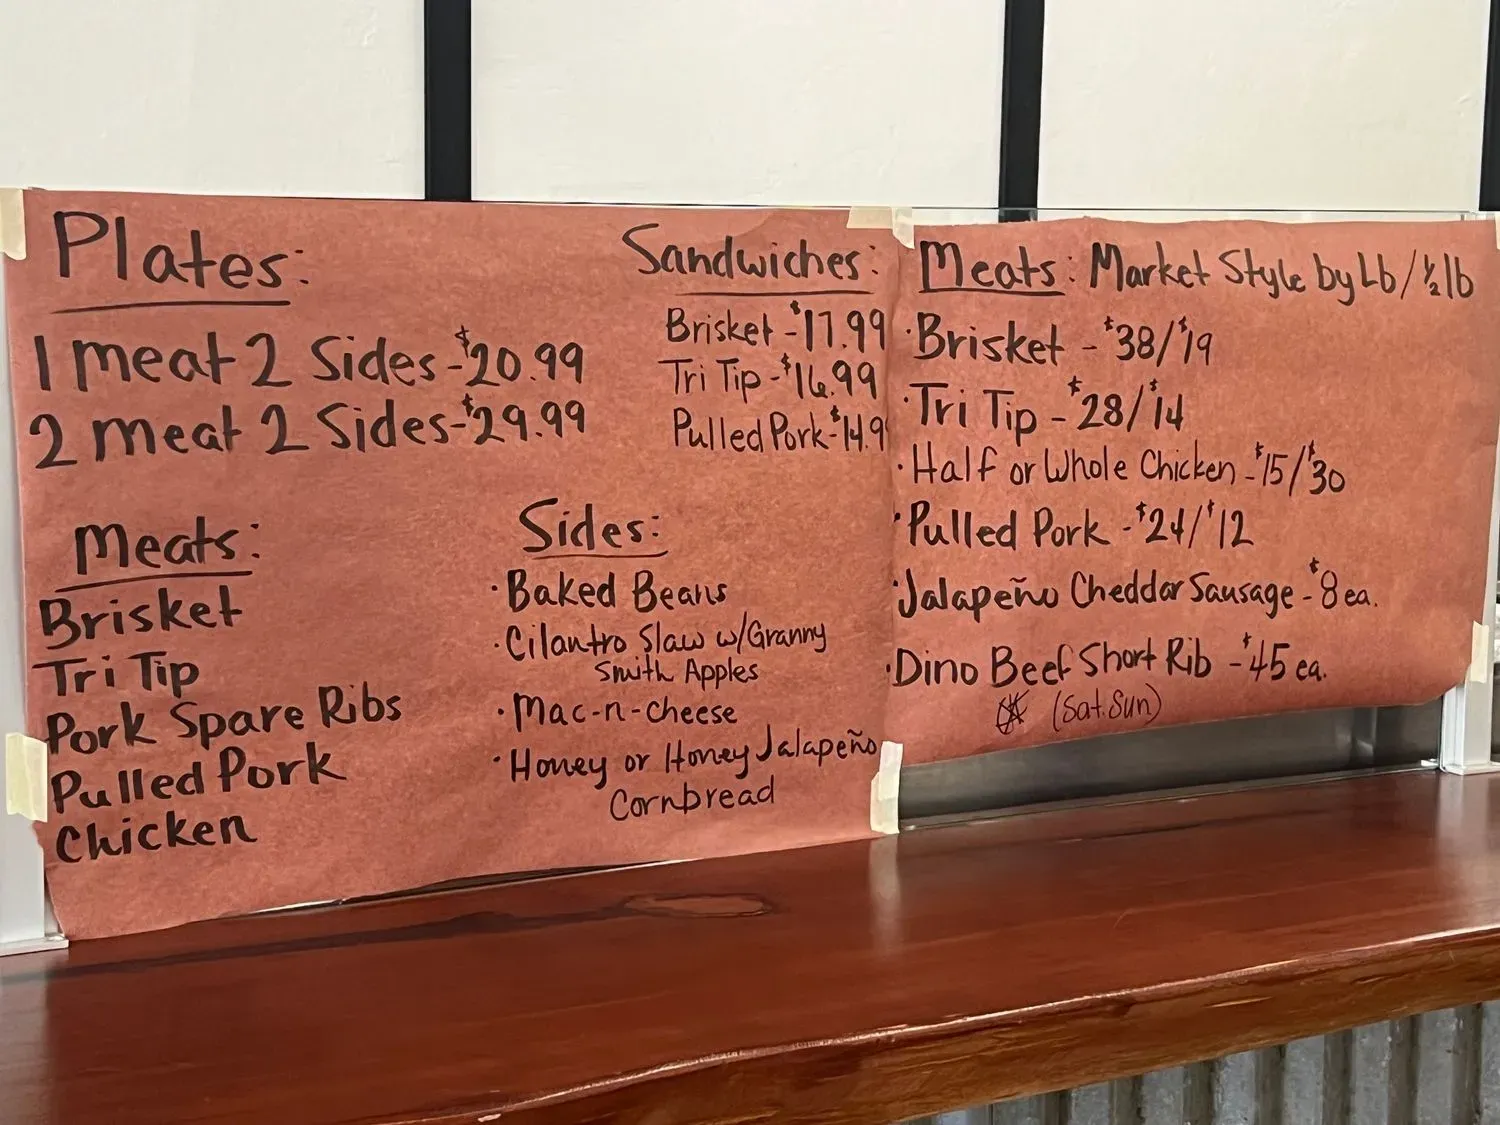 Plates:
1 meat 2 Sides - $20.99
2 meat 2 Sides - $29.99
Meats:
Brisket
Tri Tip
Pork Spare Ribs
Pulled Pork
Chicken
Sandwiches:
Brisket - $17.99
Tri Tip - $16.99
Pulled Pork - $14.9
Sides:
· Baked Beans
· Cilantro Slaw w/Granny
Smith Apples
· Mac-n-cheese
· Honey or Honey Jalapeño
Cornbread
Meats: Market Style by Lb / ½ lb
· Brisket - $38/$19
· Tri Tip - $28/$14
· Half or Whole Chicken - $15/$30
· Pulled Pork - $24/$12
· Jalapeño Cheddar Sausage - $8 ea.
· Dino Beef Short Rib - $45 ea.
(Sat. Sun)